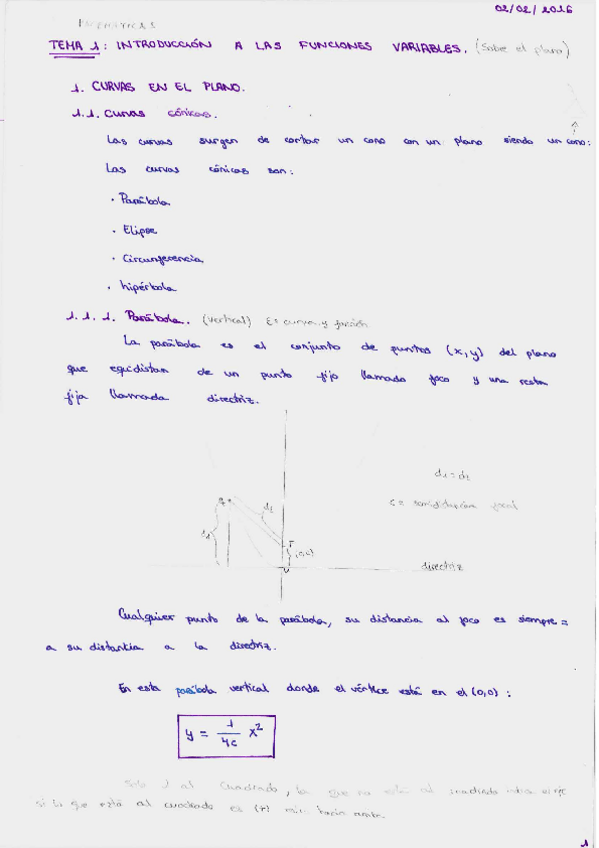 02/02/2016
MATEMÁTICAS
TEMA 1: INTRODUCCIÓN A LAS FUNCIONES VARIABLES. (Sobre el plano)
1. CURVAS EN EL PLANO.
1.1. Curvas cónicas.
Las curvas surgen de cortar un cono con un plano siendo un cono:
Las curvas cónicas son:
· Parábola
· Elipse
· Circunferencia
· hipérbola
1.1.1. Parábola. (vertical) Es curva y función
La parábola es el conjunto de puntos (x,y) del plano
que equidistan de un punto fijo llamado foco y una recta
fija llamada directriz.
d1 = d2
c = semidistancia focal
d2
d1
F
(0,c)
V
directriz
Cualquier punto de la parábola, su distancia al foco es siempre =
a su distantia a la directriz.
En esta parábola vertical donde el vértice está en el (0,0):
y = 1/4c x²
Solo 1 al cuadrado, la que no está al cuadrado
si lo que está al cuadrado es (+) mira hacia arriba.
1